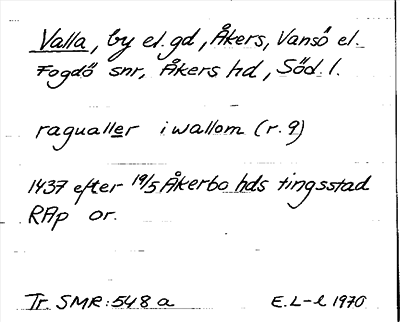 Valla, by el. gd, Åkers, Vansö el.
Fogdö snr, Åkers hd, Söd. l.
ragualler iwallom (r. 9)
1437 efter 19/5 Åkerbo hds tingsstad
RAp or.
Tr. SMR: 548 a E. L-l 1970